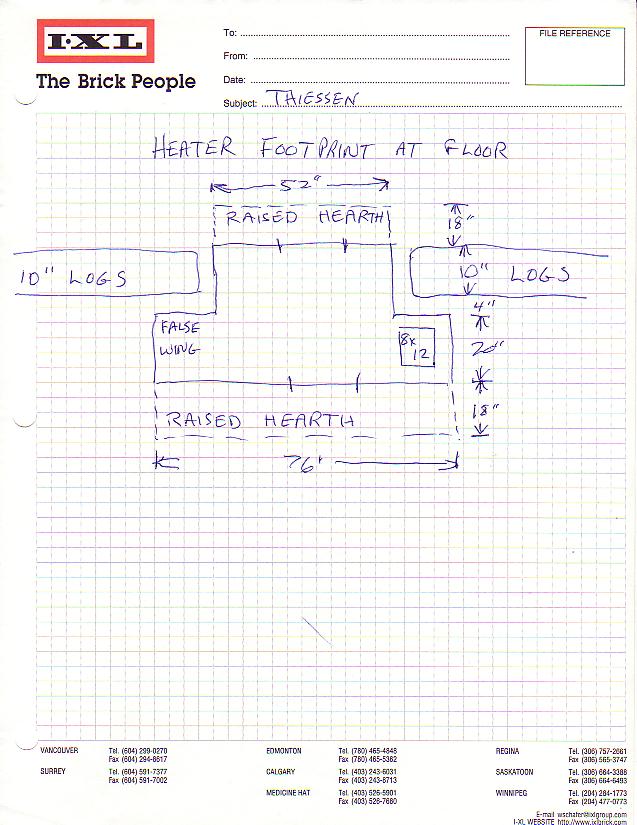 I·XL
The Brick People
To:
From:
Date:
Subject: THIESSEN
FILE REFERENCE
HEATER FOOTPRINT AT FLOOR
52"
RAISED HEARTH
18"
10" LOGS
10" LOGS
4"
FALSE
WING
8x
12
20"
RAISED HEARTH
18"
76"
VANCOUVER Tel. (604) 299-0270
Fax (604) 294-8617
SURREY Tel. (604) 591-7377
Fax (604) 591-7002
EDMONTON Tel. (780) 465-4848
Fax (780) 465-5362
CALGARY Tel. (403) 243-6031
Fax (403) 243-8713
MEDICINE HAT Tel. (403) 526-5901
Fax (403) 526-7680
REGINA Tel. (306) 757-2661
Fax (306) 565-3747
SASKATOON Tel. (306) 664-3388
Fax (306) 664-6493
WINNIPEG Tel. (204) 284-1773
Fax (204) 477-0773
E-mail wschafer@ixlgroup.com
I-XL WEBSITE http://www.ixlbrick.com